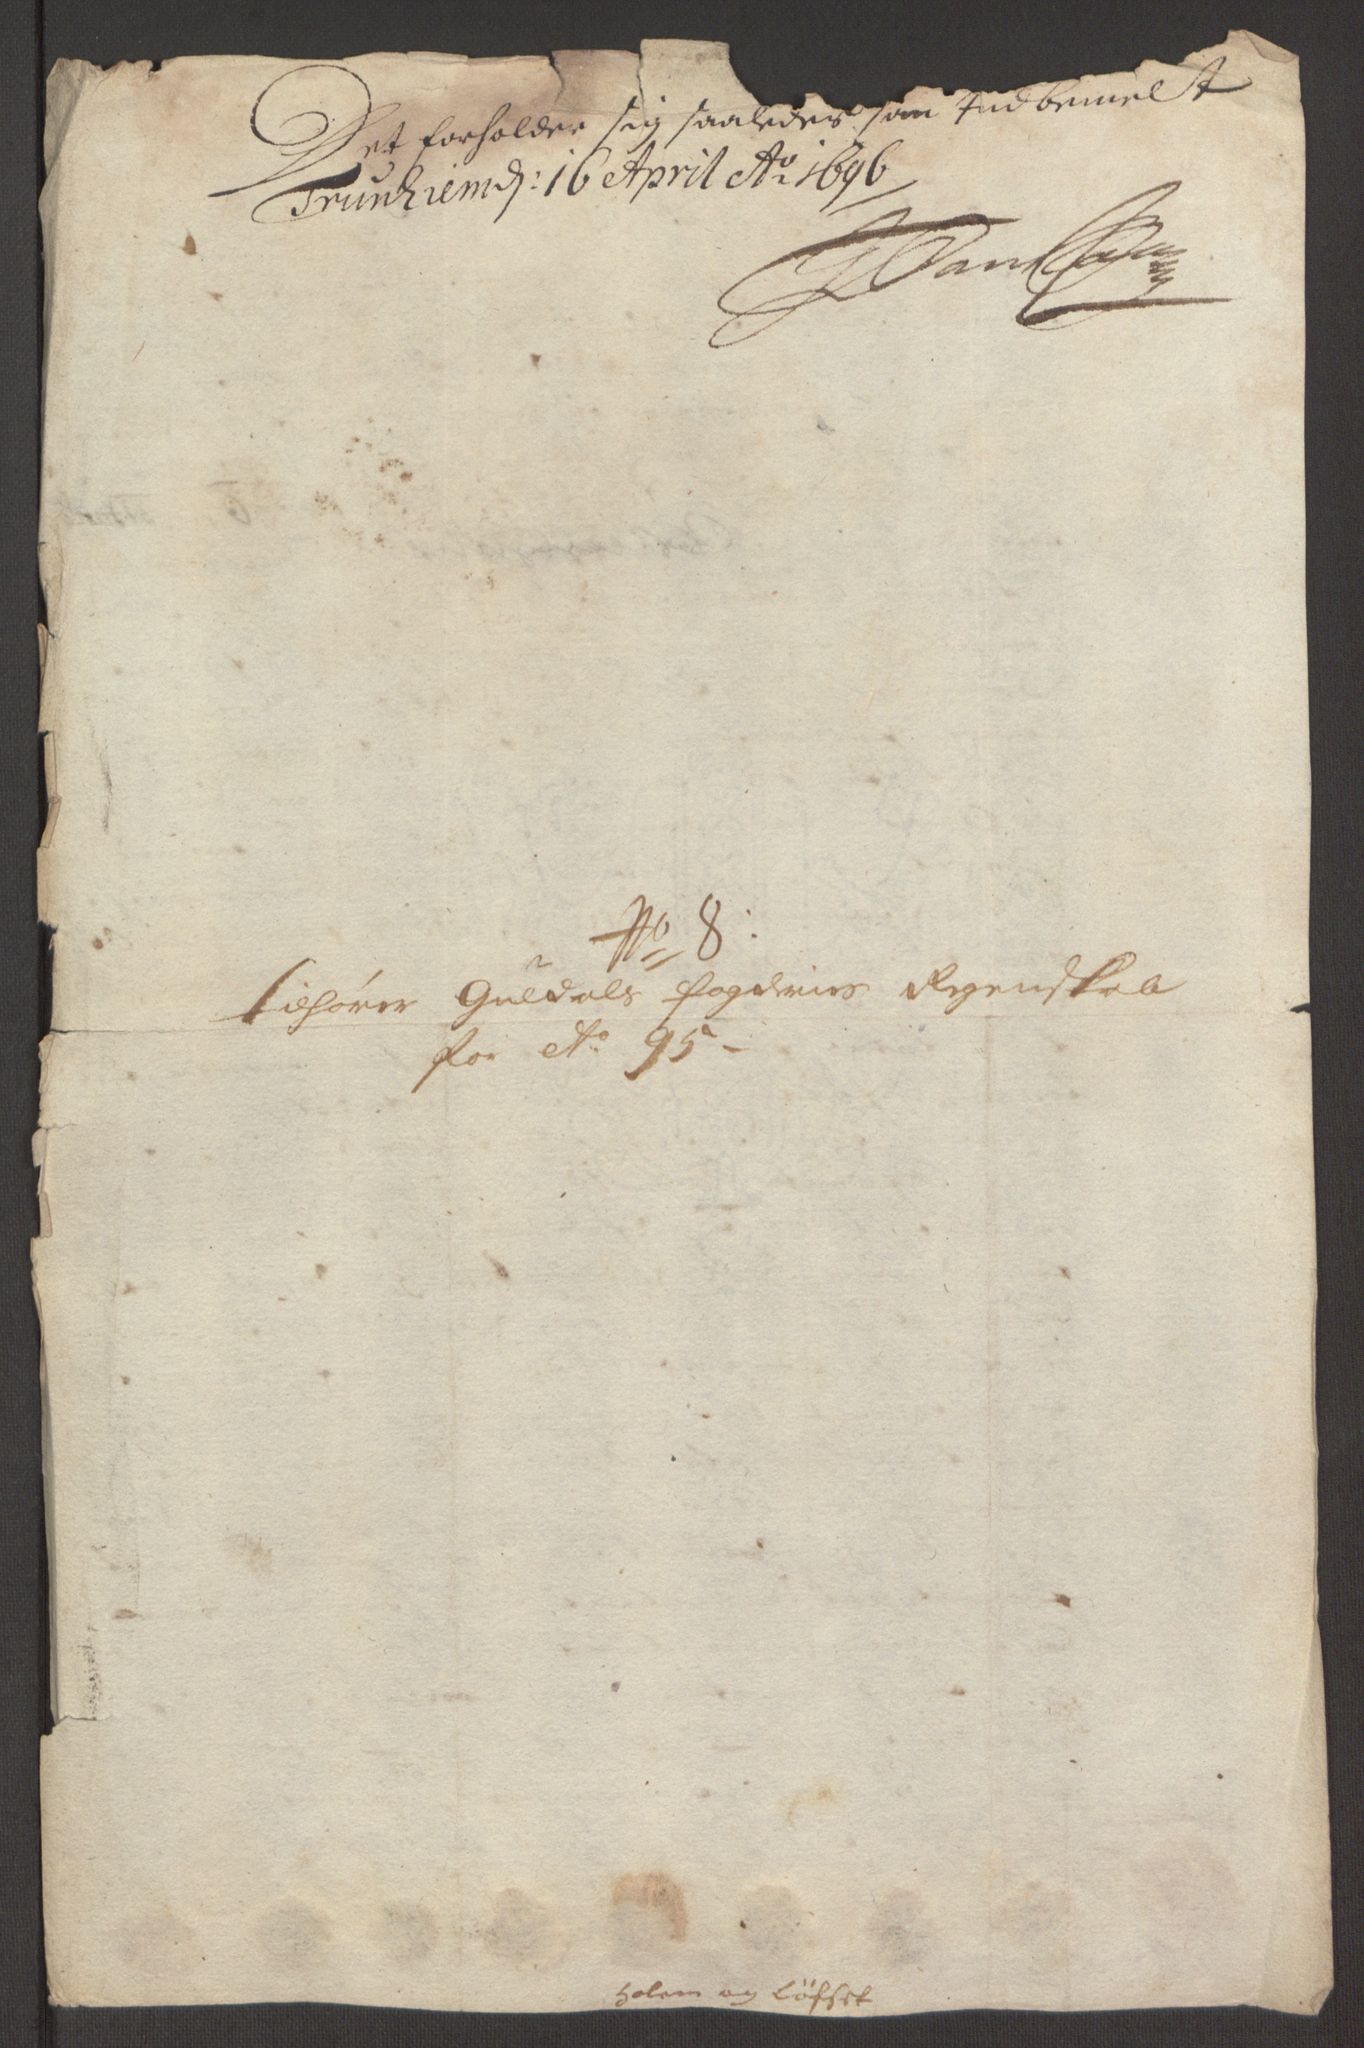 Det forholder sig saaledes som Indbemelt
Trunhiemb d: 16 April Ao 1696
No 8:
tilhörer Guldals fogderies Regenskab
for Ao 95
Holem og Löfset